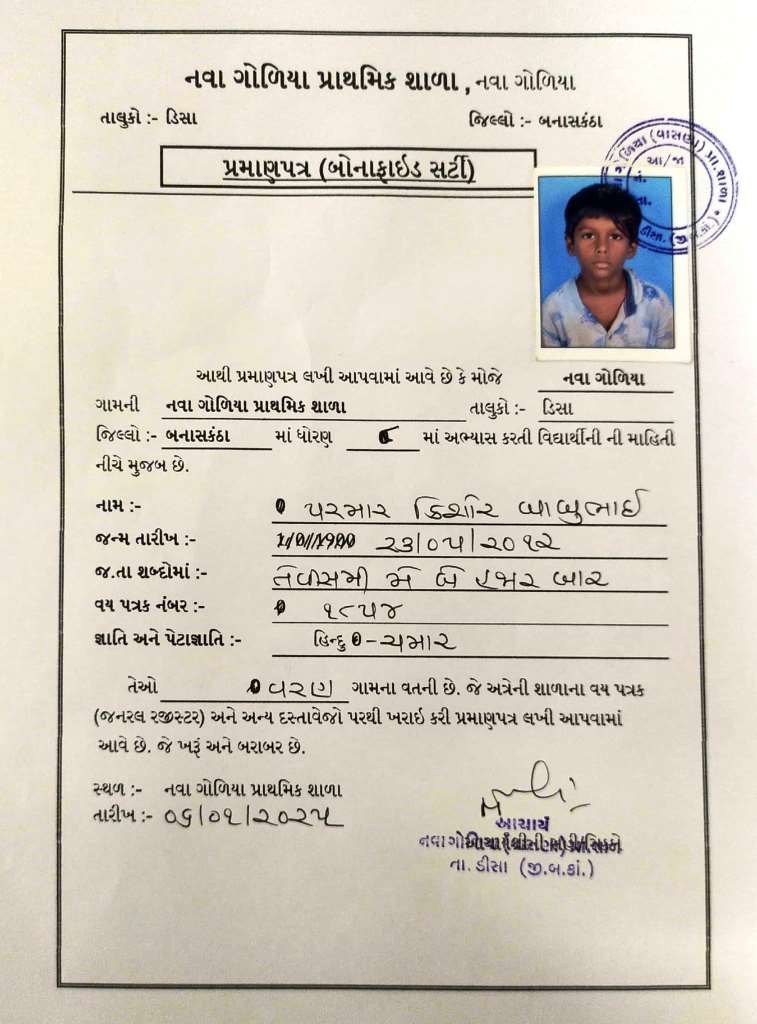 નવા ગોળિયા પ્રાથમિક શાળા , નવા ગોળિયા
તાલુકો :- ડિસા જિલ્લો :- બનાસકંઠા
પ્રમાણપત્ર (બોનાફાઇડ સર્ટી)
(વાસણા) પ્રા.શાળા
આ/જા
નં.
તા.
ડીસા.
આથી પ્રમાણપત્ર લખી આપવામાં આવે છે કે મોજે નવા ગોળિયા
ગામની નવા ગોળિયા પ્રાથમિક શાળા તાલુકો :- ડિસા
જિલ્લો :- બનાસકંઠા માં ધોરણ માં અભ્યાસ કરતી વિદ્યાર્થીની ની માહિતી
નીચે મુજબ છે.
નામ :- પરમાર કિશોર બાબુભાઈ
જન્મ તારીખ :- ૨૩/૦૫/૨૦૧૨
જ.તા શબ્દોમાં :- તેવીસમી મે બે હજાર બાર
વય પત્રક નંબર :- ૧૮૫૪
જ્ઞાતિ અને પેટાજ્ઞાતિ :- હિન્દુ - ચમાર
તેઓ વરણ ગામના વતની છે. જે અત્રેની શાળાના વય પત્રક
(જનરલ રજીસ્ટર) અને અન્ય દસ્તાવેજો પરથી ખરાઇ કરી પ્રમાણપત્ર લખી આપવામાં
આવે છે. જે ખરૂં અને બરાબર છે.
સ્થળ :- નવા ગોળિયા પ્રાથમિક શાળા
તારીખ :- ૦૬/૦૧/૨૦૨૫
આચાર્ય
તા. ડીસા (જી.બ.કાં.)